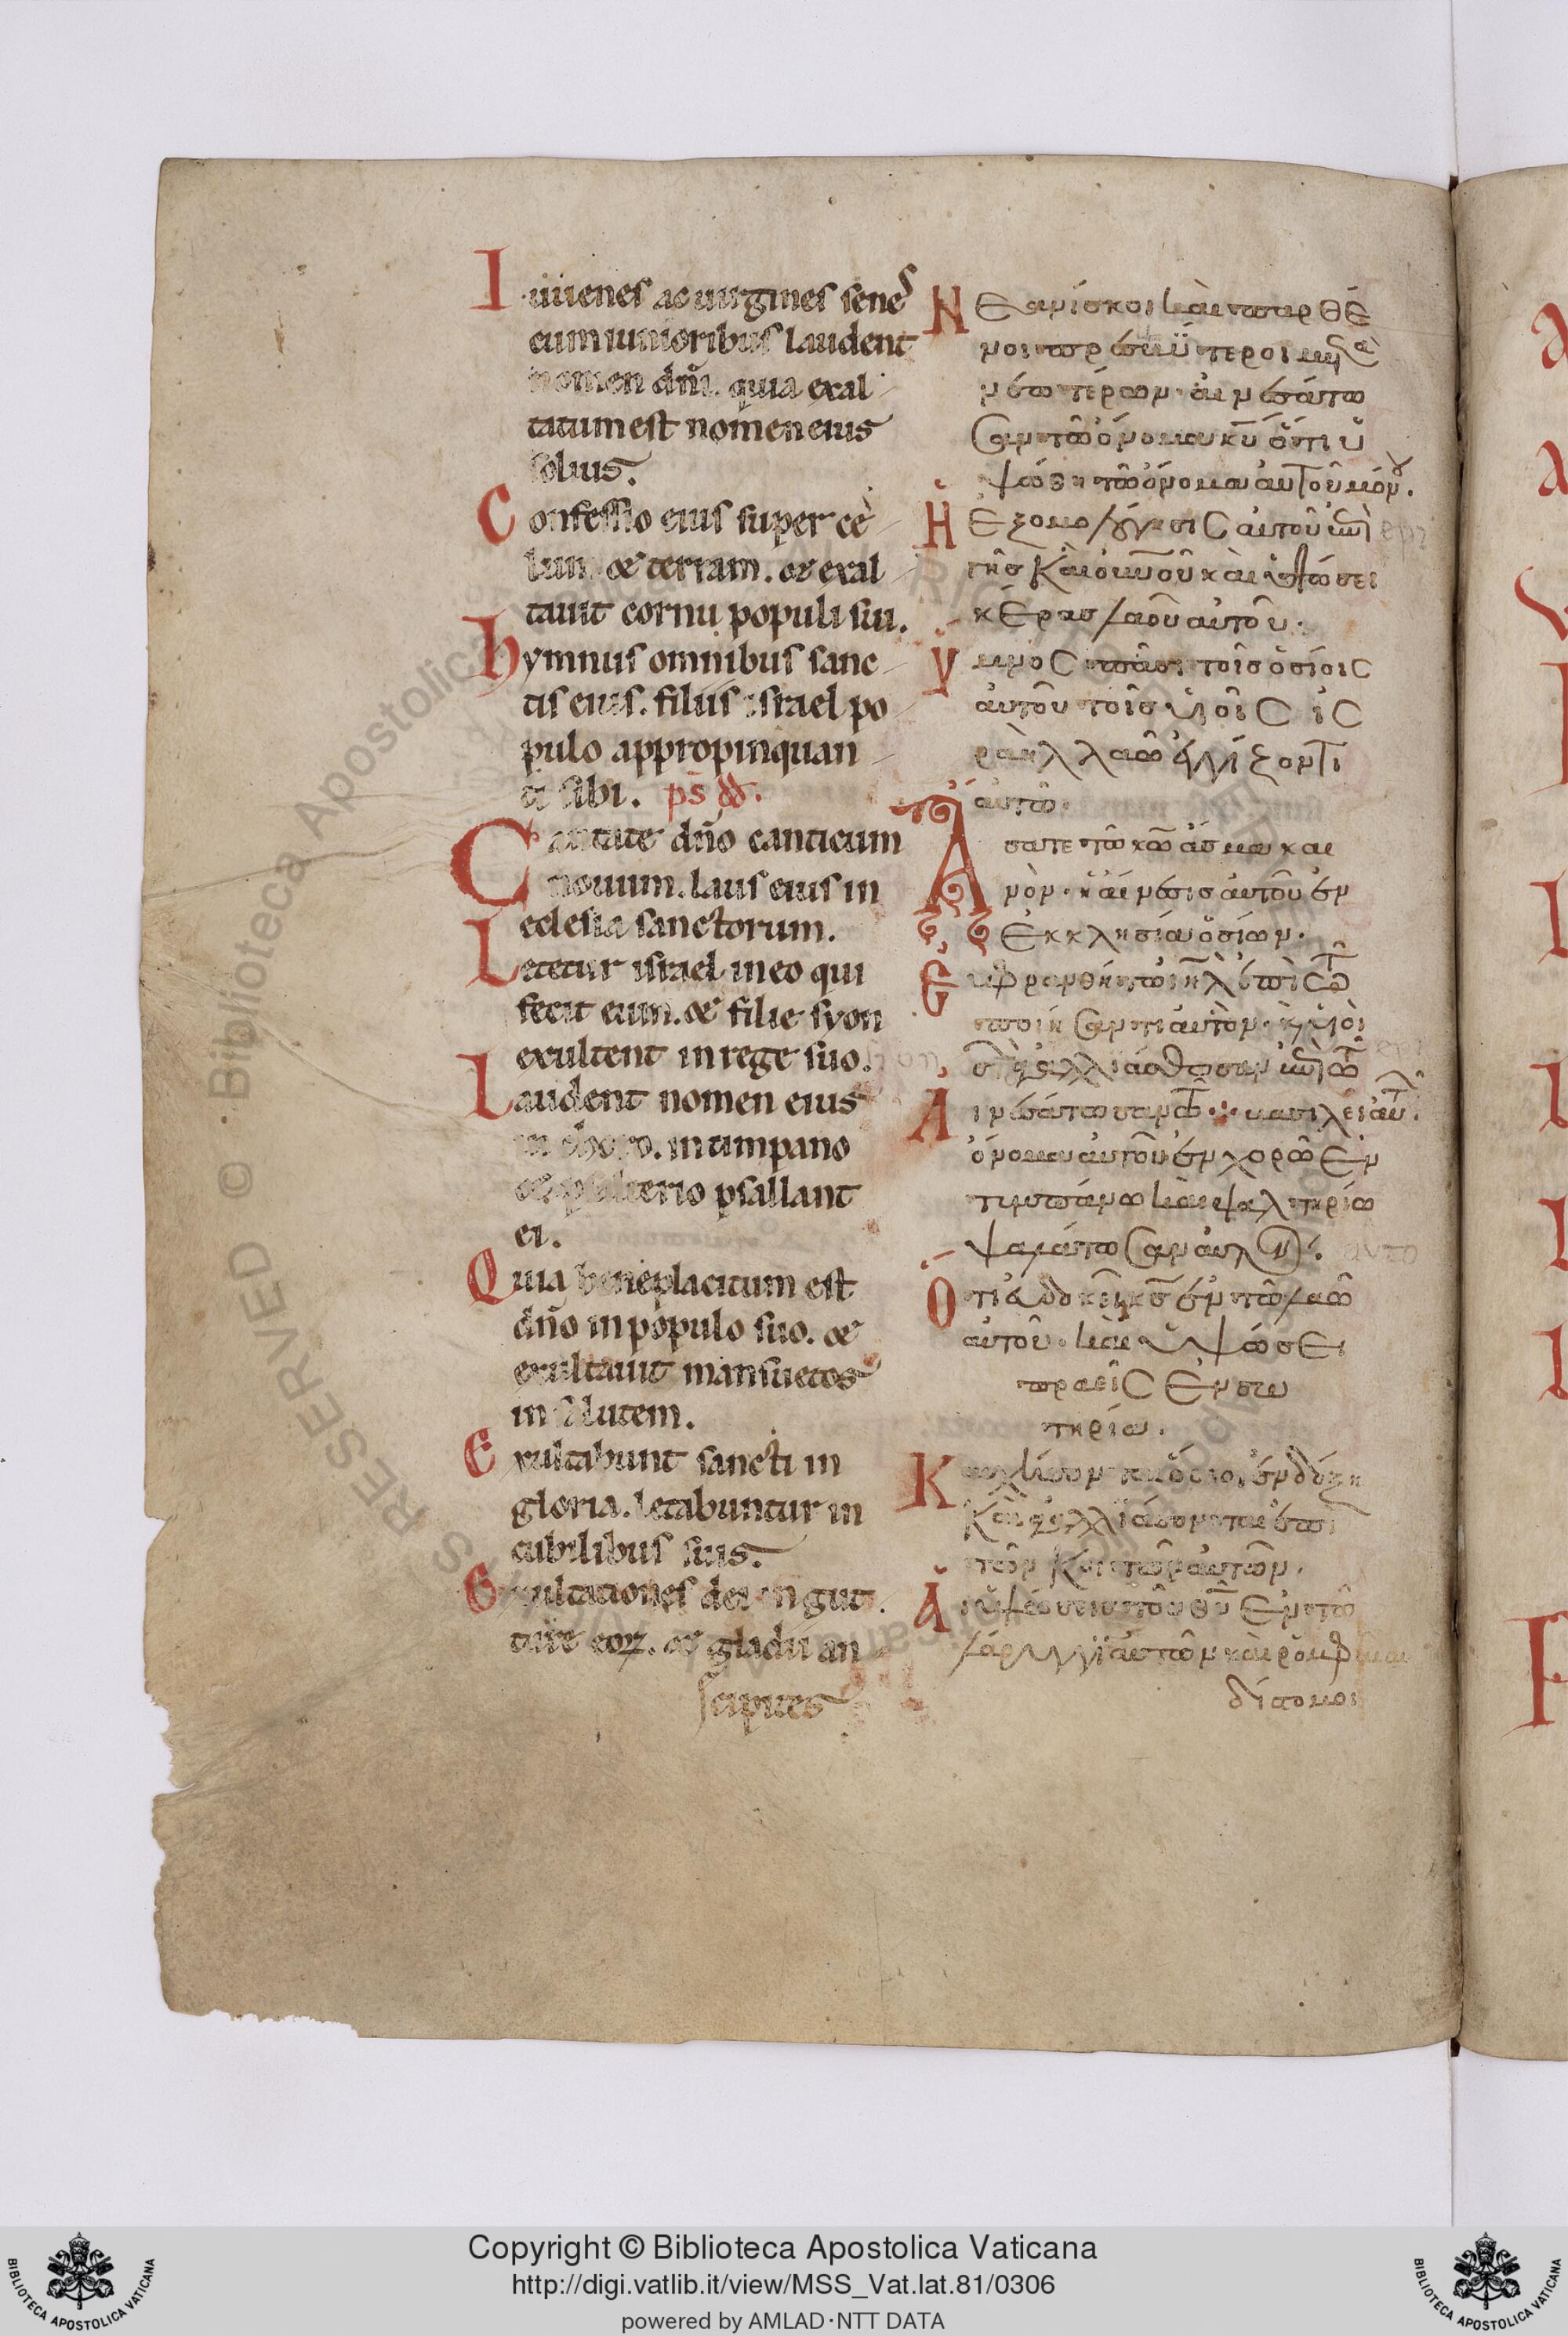 Iuuenes ac uirgines senes
cum iunioribus laudent
nomen dñi. quia exal
tatum est nomen eius
solius.
Confessio eius super cę
lum & terram. & exal
tauit cornu populi sui.
hymnus omnibus sanc
tis eius. filiis israel po
pulo appropinquan
ti sibi. ps dd.
Cantate dño canticum
nouum. laus eius in
ecclesia sanctorum.
Letetur israel in eo qui
fecit eum. & filie syon
exultent in rege suo.
Laudent nomen eius
in choro. in timpano
& psalterio psallant
ei.
Quia beneplacitum est
dño in populo suo. &
exultauit mansuetos
in salutem.
Exultabunt sancti in
gloria. letabuntur in
cubilibus suis.
Exultationes dei in gut
ture eoꝝ. & gladii an
scipites
Νεανίσκοι καὶ παρθέ
νοι πρεσβύτεροι μετὰ
νεωτέρων. αἰνεσάτω
σαν τὸ ὄνομα κυ ὅτι ὑ
ψώθη τὸ ὄνομα αὐτοῦ μόνου.
Ἡ ἐξομολόγησις αὐτοῦ ἐπὶ
γῆς καὶ οὐνοῦ καὶ ὑψώσει
κέρας λαοῦ αὐτοῦ.
Ὕμνος πᾶσι τοῖς ὁσίοις
αὐτοῦ τοῖς υἱοῖς ἰς
ραὴλ λαῷ ἐγγίζοντι
αὐτῷ.
Ἄσατε τῷ κῷ ἆσμα και
νόν. ἡ αἴνεσις αὐτοῦ ἐν
ἐκκλησίᾳ ὁσίων.
Εὐφρανθήτω ιηλ ἐπὶ τῷ
ποιήσαντι αὐτόν. καὶ υἱοὶ
σιὼν ἀγαλλιάσθωσαν ἐπὶ τῷ
βασιλεῖ αὐτ.
Αἰνεσάτωσαν τὸ
ὄνομα αὐτοῦ ἐν χορῷ ἐν
τυμπάνῳ καὶ ψαλτηρίῳ
ψαλάτωσαν αὐτῷ.
Ὅτι εὐδοκεῖ κς ἐν τῷ λαῷ
αὐτοῦ. καὶ ὑψώσει
πραεῖς ἐν σω
τηρίᾳ.
Καυχήσονται ὅσιοι ἐν δόξῃ
καὶ ἀγαλλιάσονται ἐπὶ
τῶν κοιτῶν αὐτῶν.
Αἱ ὑψώσεις τοῦ θυ ἐν τῷ
λάρυγγι αὐτῶν καὶ ῥομφαῖαι
δίστομοι
Copyright © Biblioteca Apostolica Vaticana
http://digi.vatlib.it/view/MSS_Vat.lat.81/0306
powered by AMLAD·NTT DATA
BIBLIOTECA APOSTOLICA VATICANA
BIBLIOTECA APOSTOLICA VATICANA